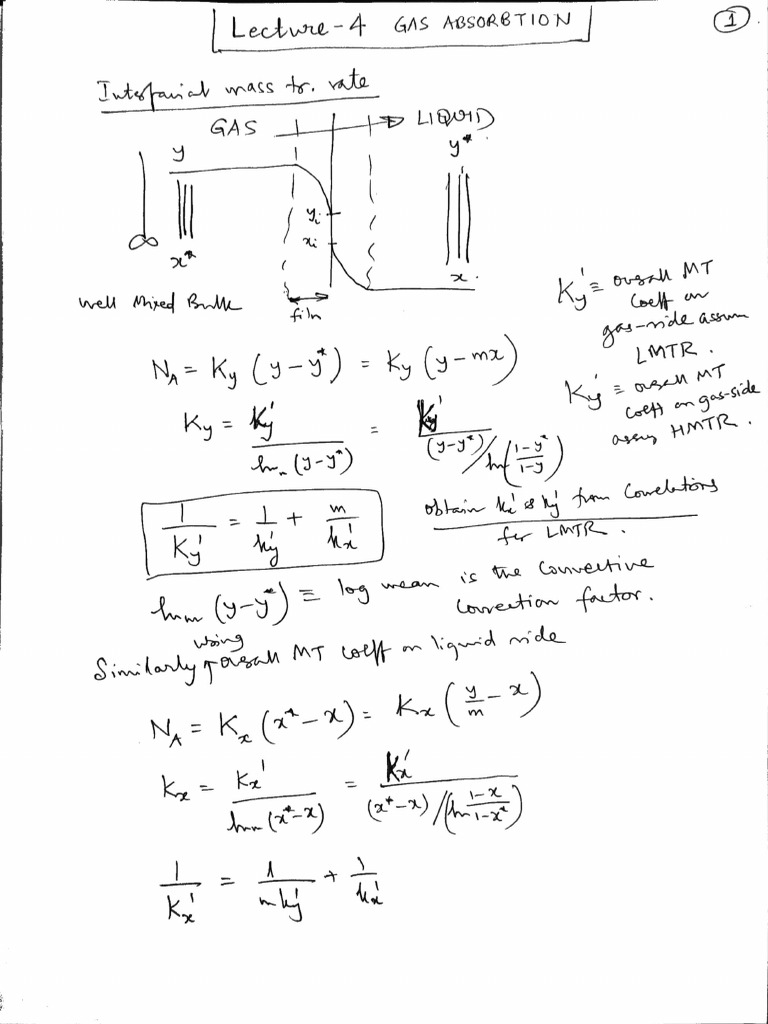 Lecture-4 GAS ABSORBTION
1
Interfacial mass tr. rate
GAS → LIQUID
y
y*
yi
xi
x*
x.
Well Mixed Bulk
film
Ky' ≡ overall MT
coeff on
gas-side assum
LMTR.
NA = Ky (y-y*) = Ky (y-mx)
Ky' ≡ overall MT
coeff on gas-side
assng HMTR.
Ky = Ky' / lnm (y-y*) = Ky' / (y-y*)/ln(1-y*/1-y)
1/Ky' = 1/ky' + m/kx'
obtain kx' & ky' from Correlations
for LMTR.
lnm (y-y*) ≡ log mean is the Convective
Correction factor.
Similarly using overall MT coeff on liquid side
NA = Kx (x*-x) = Kx (y/m - x)
Kx = Kx' / lnm (x*-x) = Kx' / (x*-x)/(ln 1-x/1-x*)
1/Kx' = 1/mky' + 1/kx'